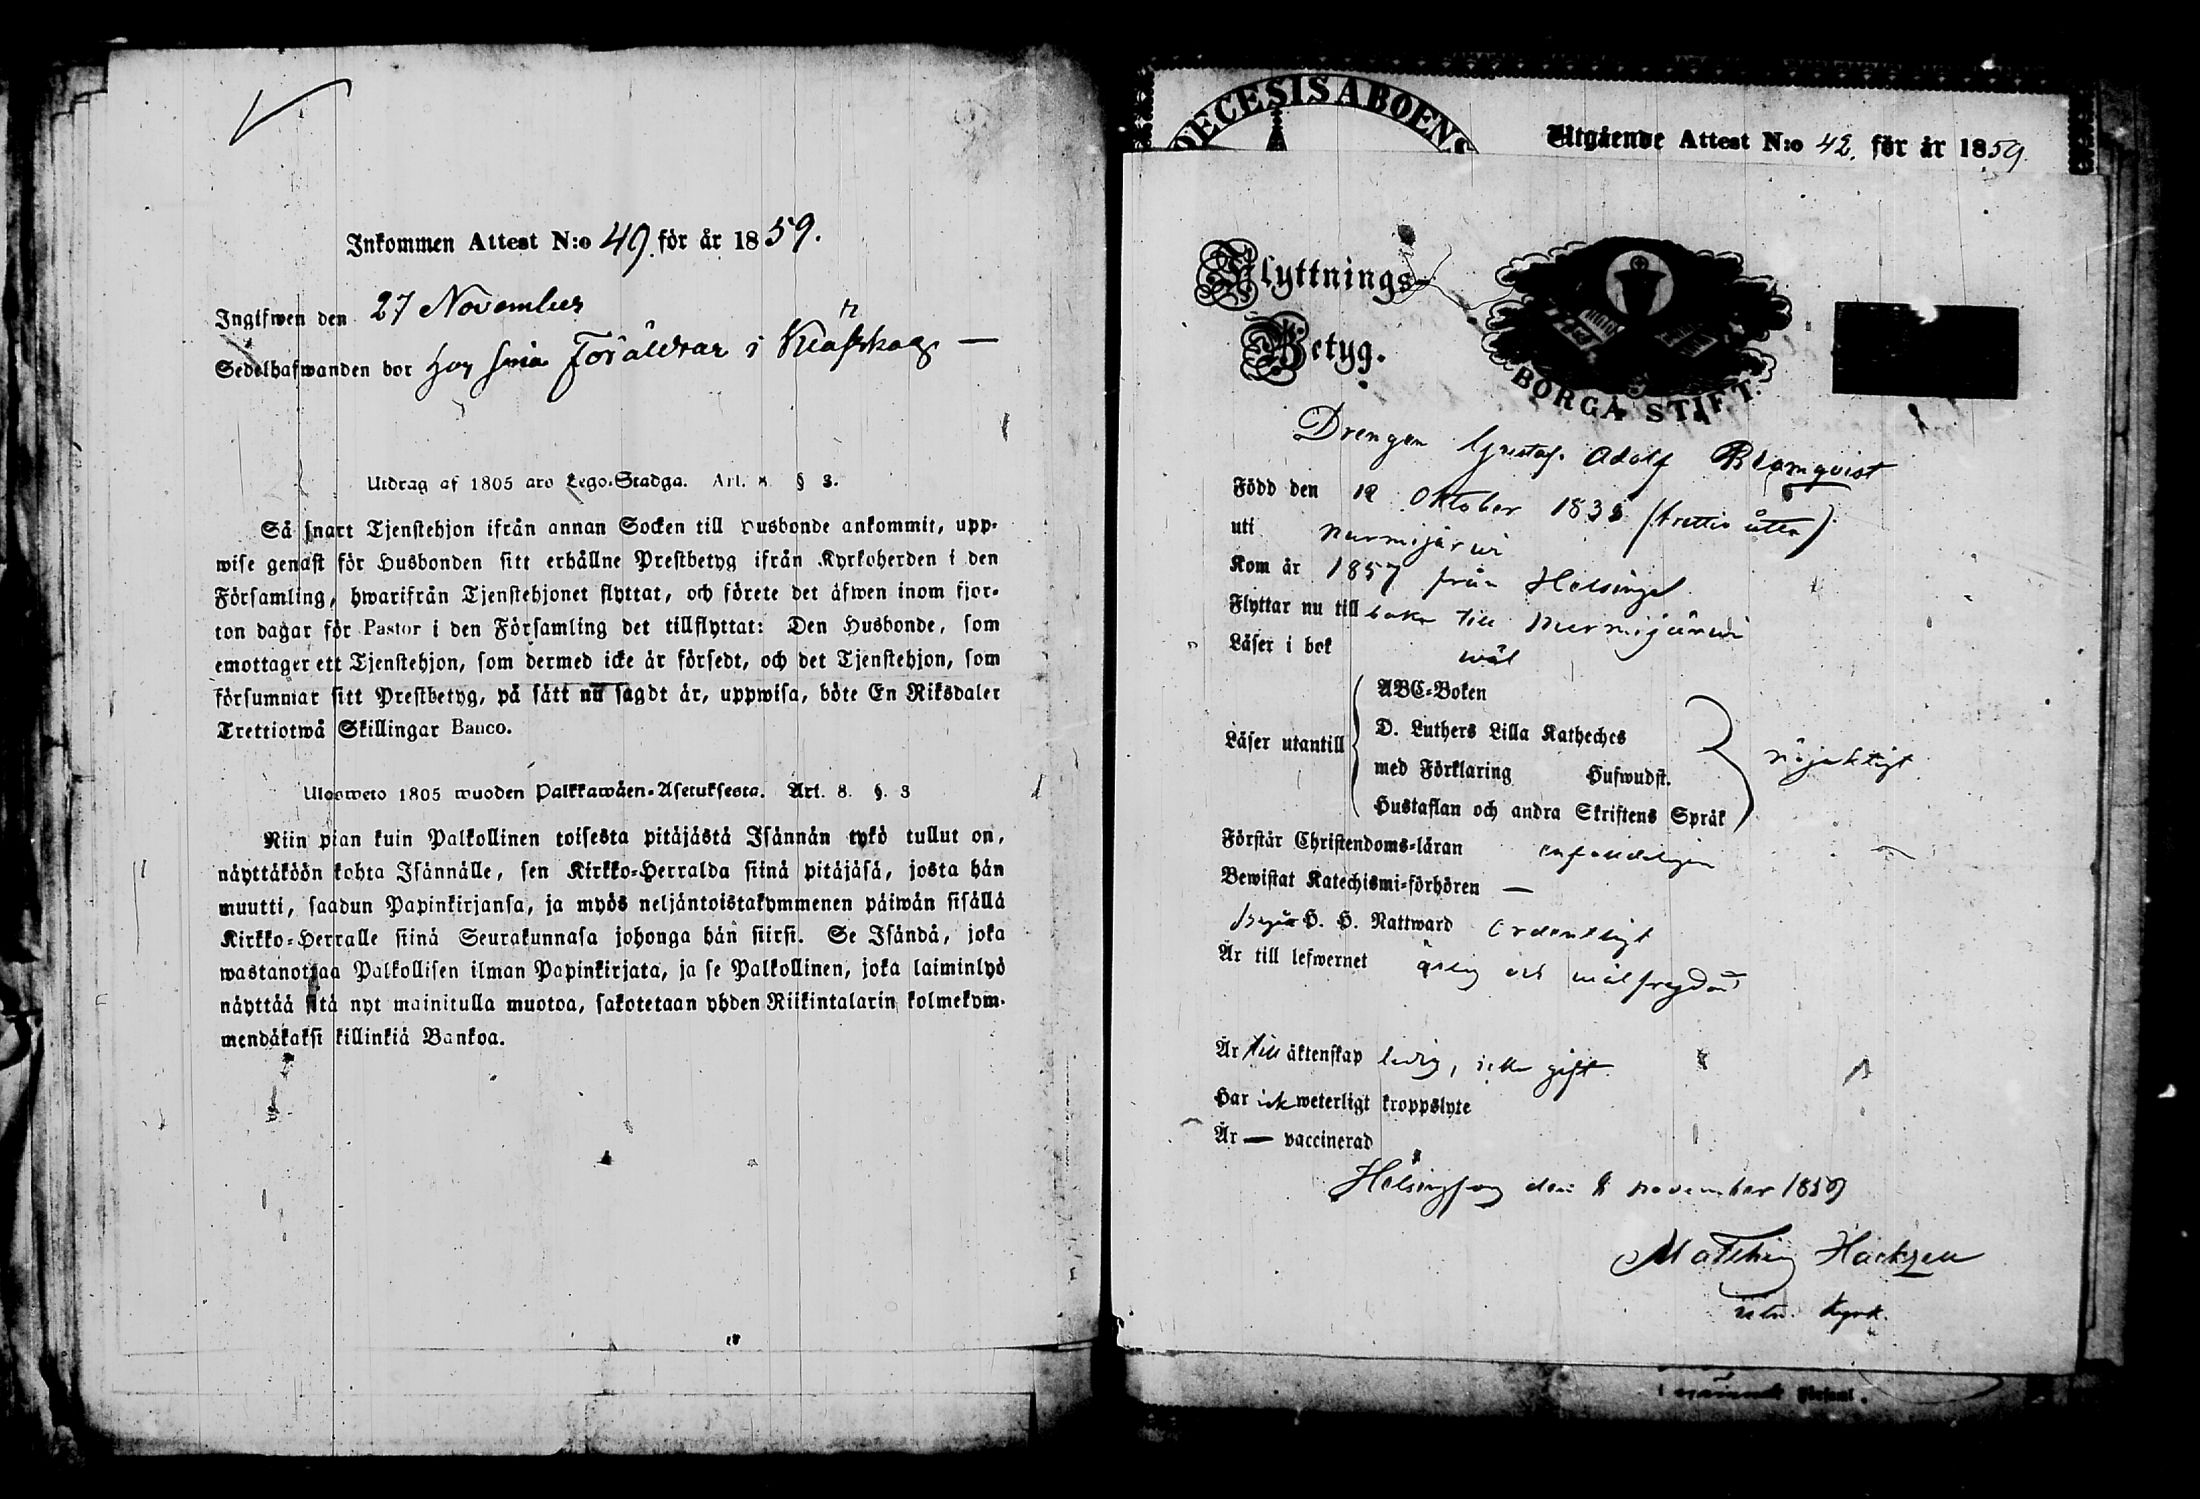 Inkommen Attest N:o 49. för år 1859.
Ingifwen den 27 November
Sedelhafwanden bor hos sina Föräldrar i
Utdrag af 1805 års Lego-Stadga. Art. 8 § 3.
Så snart Tjenstehjon ifrån annan Socken till Husbonde ankommit, upp-
wise genast för Husbonden sitt erhållne Prestbetyg ifrån Kyrkoherden i den
Församling, hwarifrån Tjenstehjonet flyttat, och förete det äfwen inom fjor-
ton dagar för Pastor i den Församling det tillflyttat: Den Husbonde, som
emottager ett Tjenstehjon, som dermed icke är försedt, och det Tjenstehjon, som
försummar sitt Prestbetyg, på sätt nu sagdt är, uppwisa, böte En Riksdaler
Trettiotwå Skillingar Banco.
Ulosweto 1805 wuoden Palkkawäen-Asetuksesta. Art. 8. §. 3
Niin pian kuin Palkollinen toisesta pitäjästä Isännän tykö tullut on,
näyttäköön kohta Isännälle, sen Kirkko-Herralda siinä pitäjäsä, josta hän
muutti, saadun Papinkirjansa, ja myös neljäntoistakymmenen päiwän sisällä
Kirkko-Herralle siinä Seurakunnasa johonga hän siirsi. Se Isändä, joka
wastanottaa Palkollisen ilman Papinkirjata, ja se Palkollinen, joka laiminlyö
näyttää sitä nyt mainitulla muotoa, sakotetaan yhden Riikintalarin kolmekym-
mendäkaksi killinkiä Bankoa.
DECESIS ABOENS
Utgående Attest N:o 42. för år 1859.
Flyttnings-
Betyg.
BORGÅ STIFT.
Drengen Gustaf Adolf Blomqvist
Född den 12 Oktober 1838 (trettio åtta)
uti Nurmijärwi
Kom år 1857 från Helsinge
Flyttar nu till baka till Nurmijärwi
Läser i bok wäl
Läser utantill
ABC-Boken
D. Luthers Lilla Katheches
med Förklaring Hufwudst.
Hustaflan och andra Skriftens Språk
nöjaktigt
Förstår Christendoms-läran enfaldeligen
Bewistat Katechismi-förhören —
Begår H. H. Nattward Ordentligt
Är till lefwernet ärlig och wäl frejdad
Är till äktenskap ledig, icke gift.
Har ick weterligt kroppslyte
Är — vaccinerad
Helsingfors den 8 november 1859
Matthias Hackzell
Kyrk.